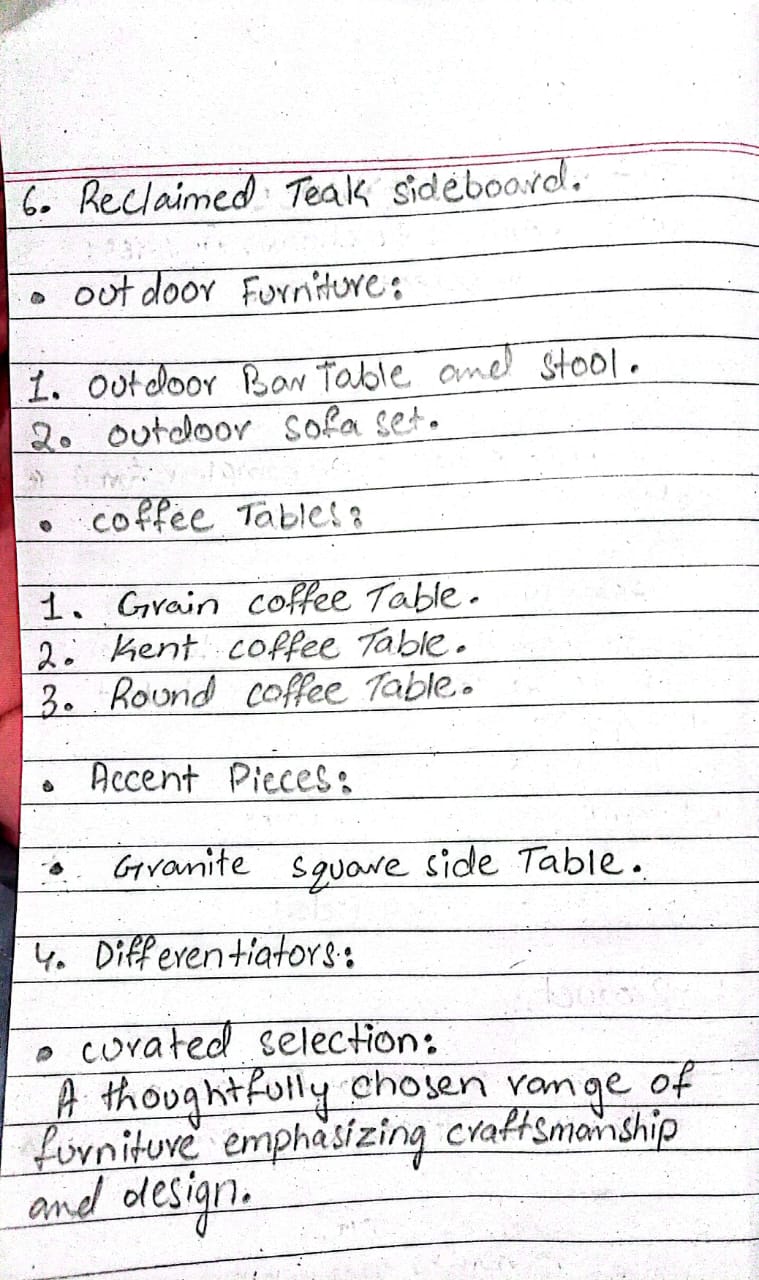 6. Reclaimed Teak sideboard.
• outdoor Furniture:
1. outdoor Bar Table and stool.
2. outdoor sofa set.
• coffee Tables:
1. Grain coffee Table.
2. Kent coffee Table.
3. Round coffee Table.
• Accent Pieces:
• Granite square side Table.
4. Differentiators:
• curated selection:
A thoughtfully chosen range of
furniture emphasizing craftsmanship
and design.